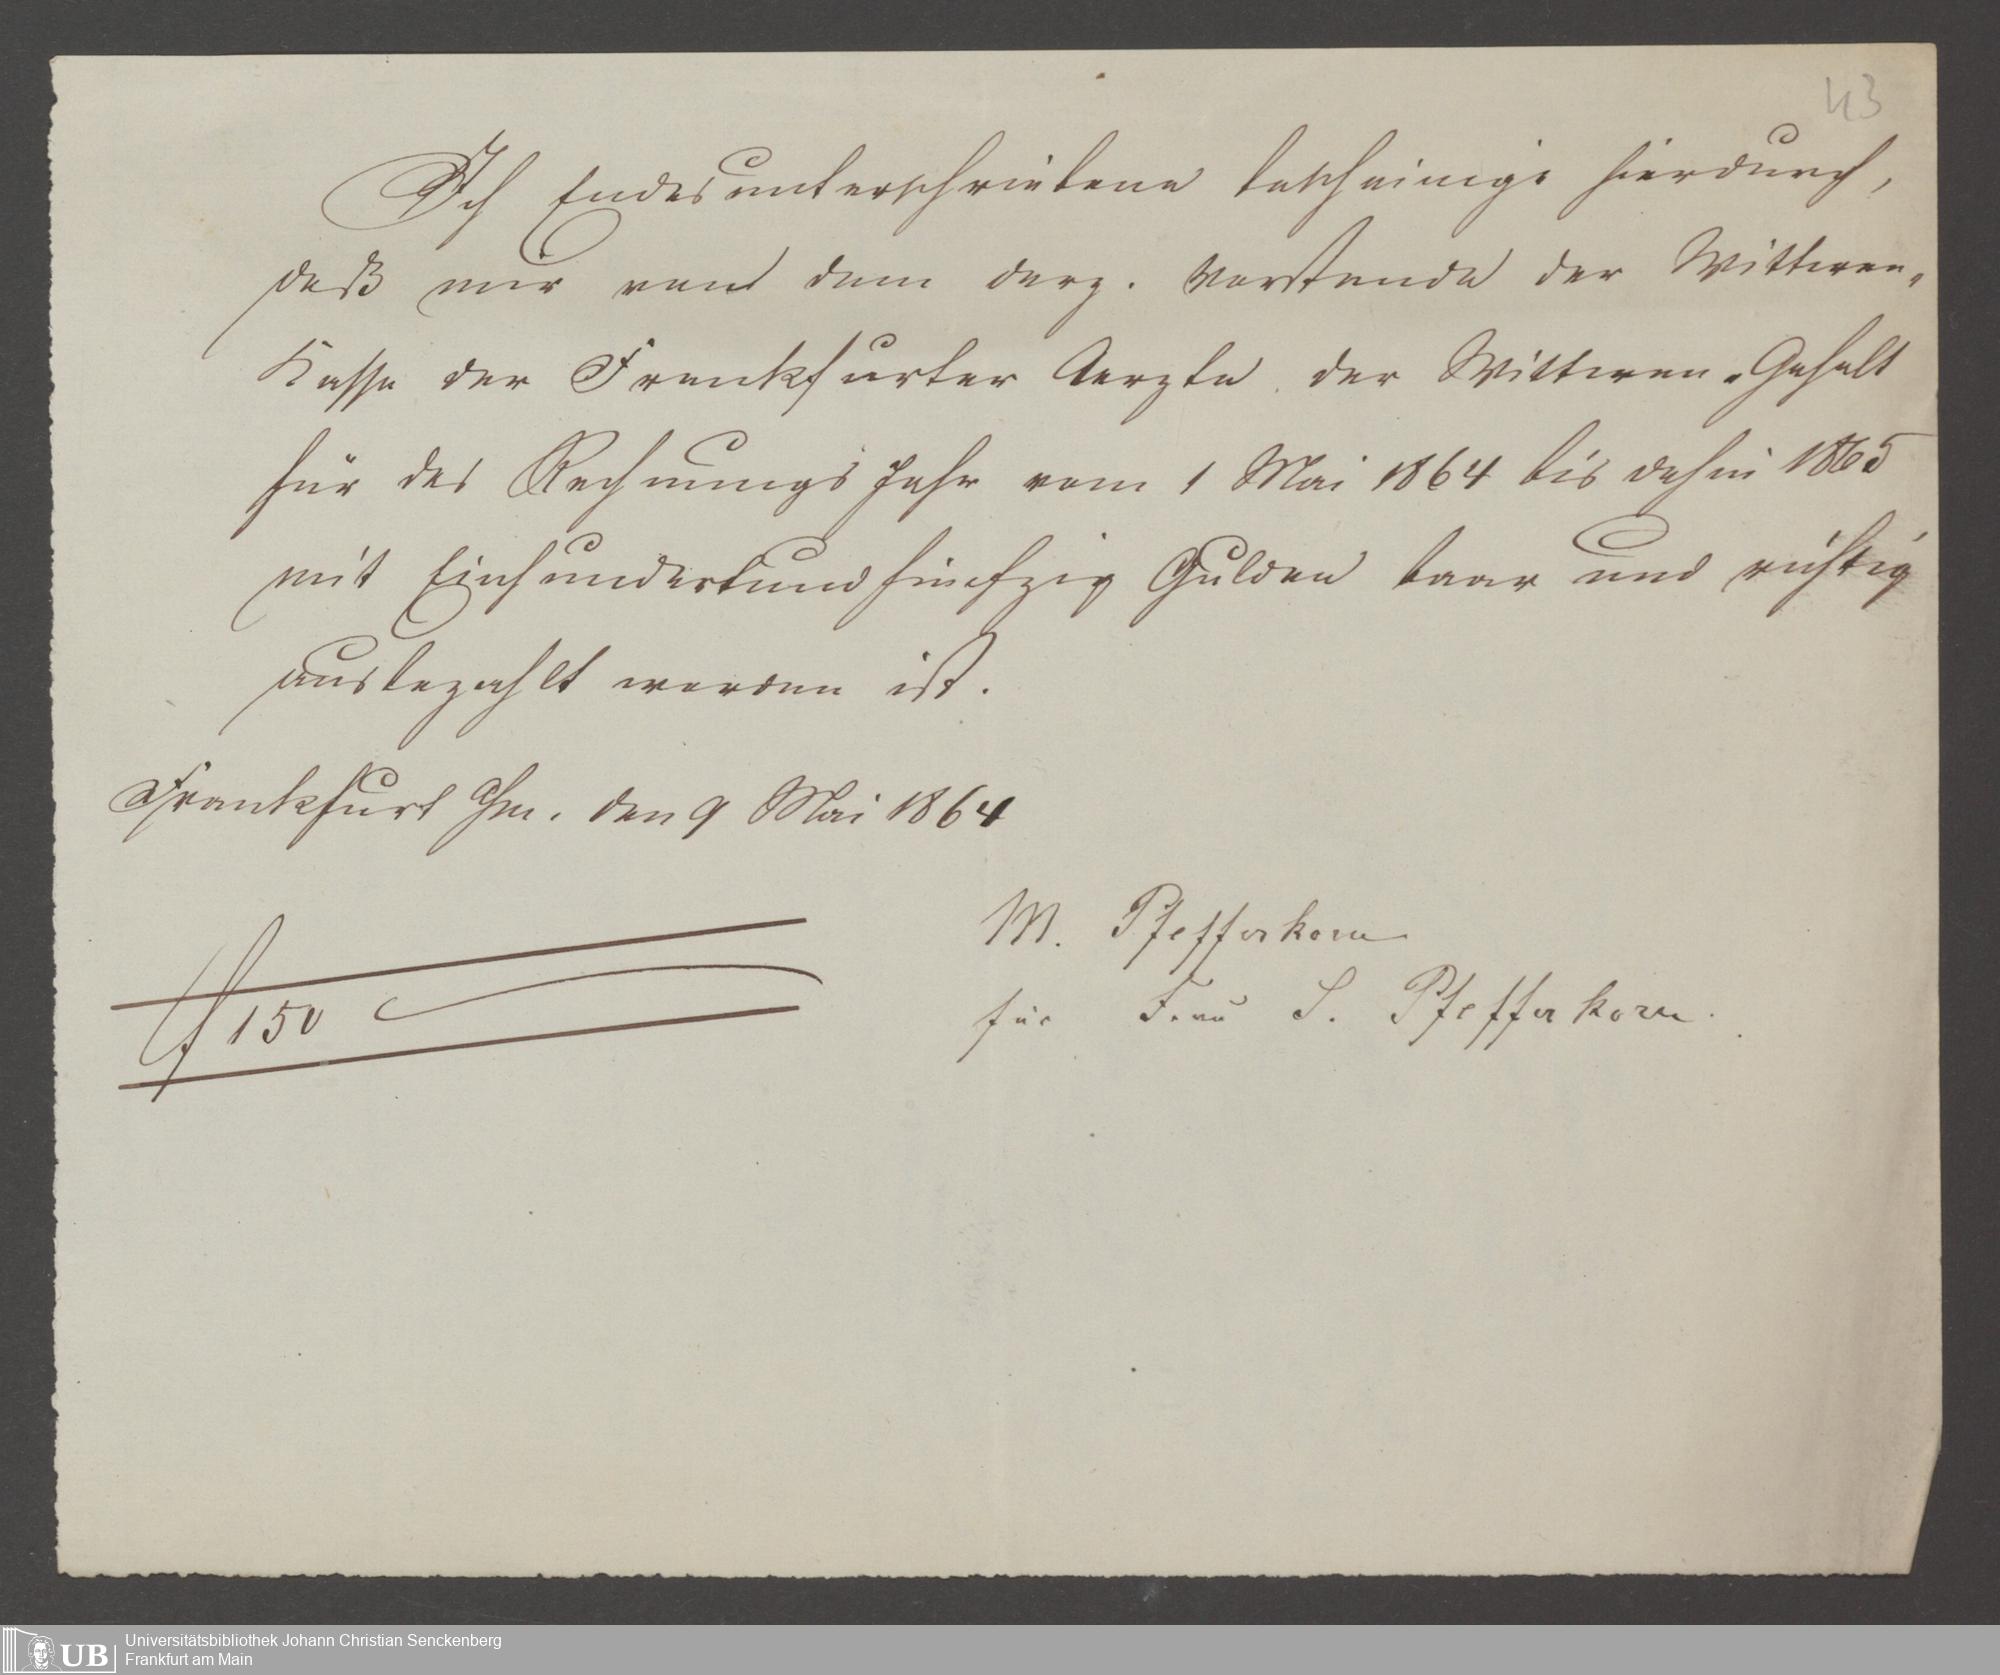 43
Ich Endesunterschriebene bescheinige hierdurch,
daß mir von dem derz. Vorstande der Wittwen-
Kasse der Frankfurter Aerzte der Wittwen-Gehalt
für das Rechnungs Jahr vom 1 Mai 1864 bis dahin 1865
mit Einhundertundfünfzig Gulden baar und richtig
ausbezahlt worden ist.
Frankfurt a/m. den 9 Mai 1864
M. Pfefferkorn
für Frau S. Pfefferkorn.
f 150
UB
Universitätsbibliothek Johann Christian Senckenberg
Frankfurt am Main